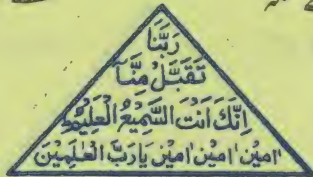 رَبَّنَا
تَقَبَّلْ مِنَّا
اِنَّكَ اَنْتَ السَّمِیْعُ الْعَلِیْمُ
اٰمِیْن اٰمِیْن اٰمِیْن یَارَبَّ الْعٰلَمِیْنَ